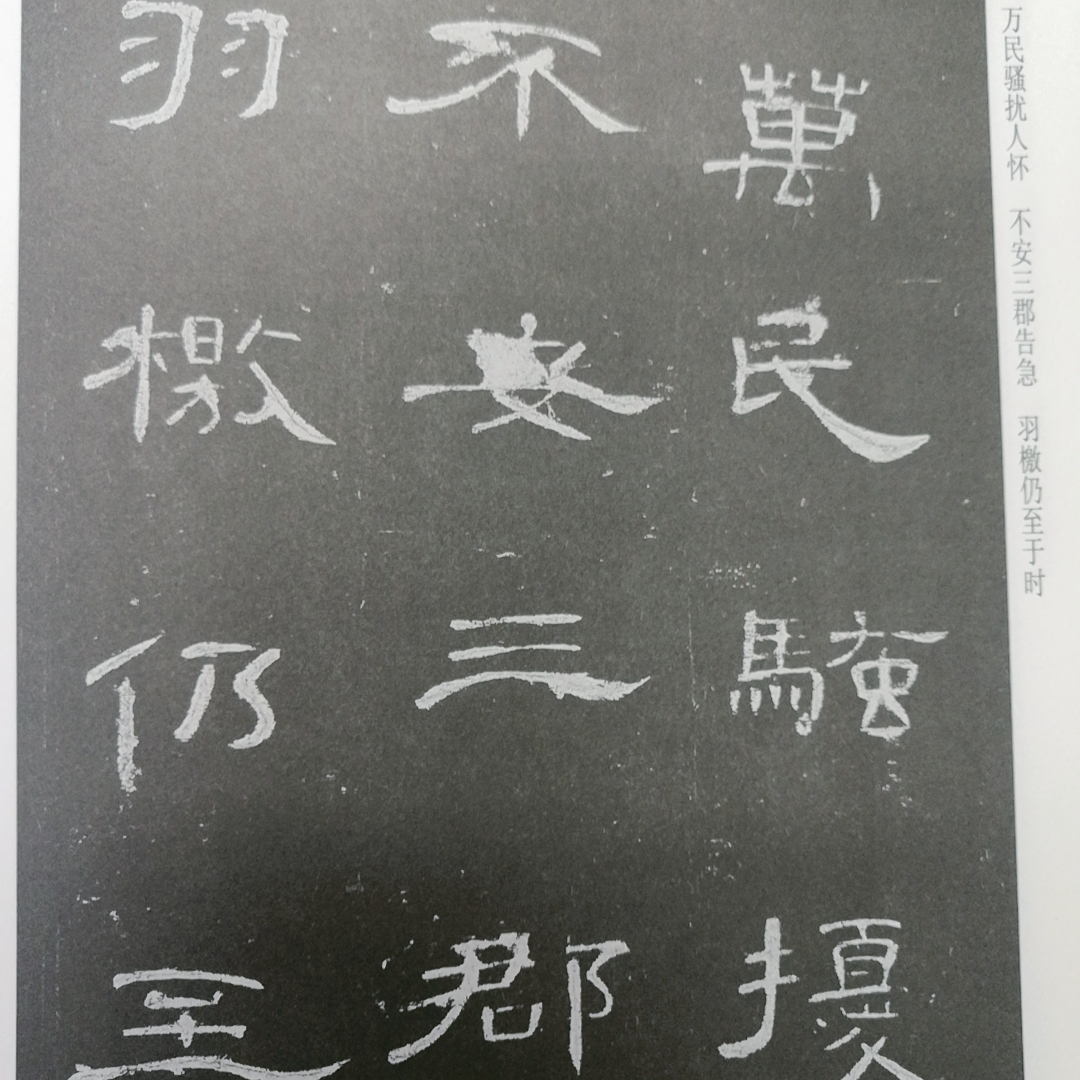 万民骚扰人怀 不安三郡告急 羽檄仍至于时
萬民騷擾
不安三郡
羽檄仍至